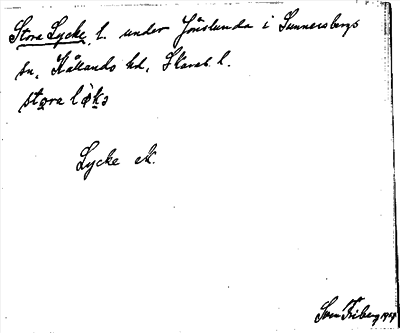 Stora Lycke, l. under Jönslunda i Sunnersbergs
sn, Kållands hd, Skarab. l.
stora lø̀kə
Lycke ek.
Sven Friberg